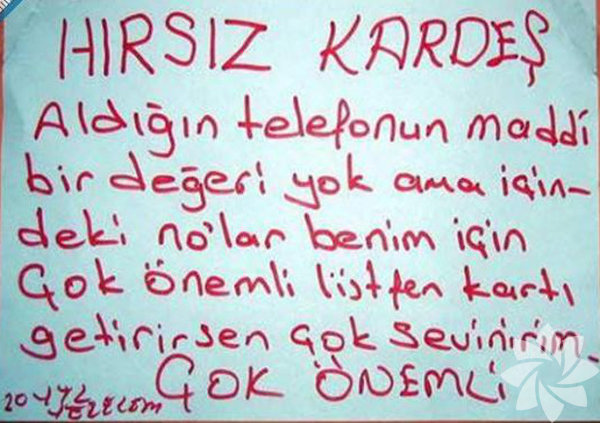 HIRSIZ KARDEŞ
Aldığın telefonun maddi
bir değeri yok ama için-
deki no'lar benim için
Çok önemli lütfen kartı
getirirsen çok sevinirim
ÇOK ÖNEMLİ